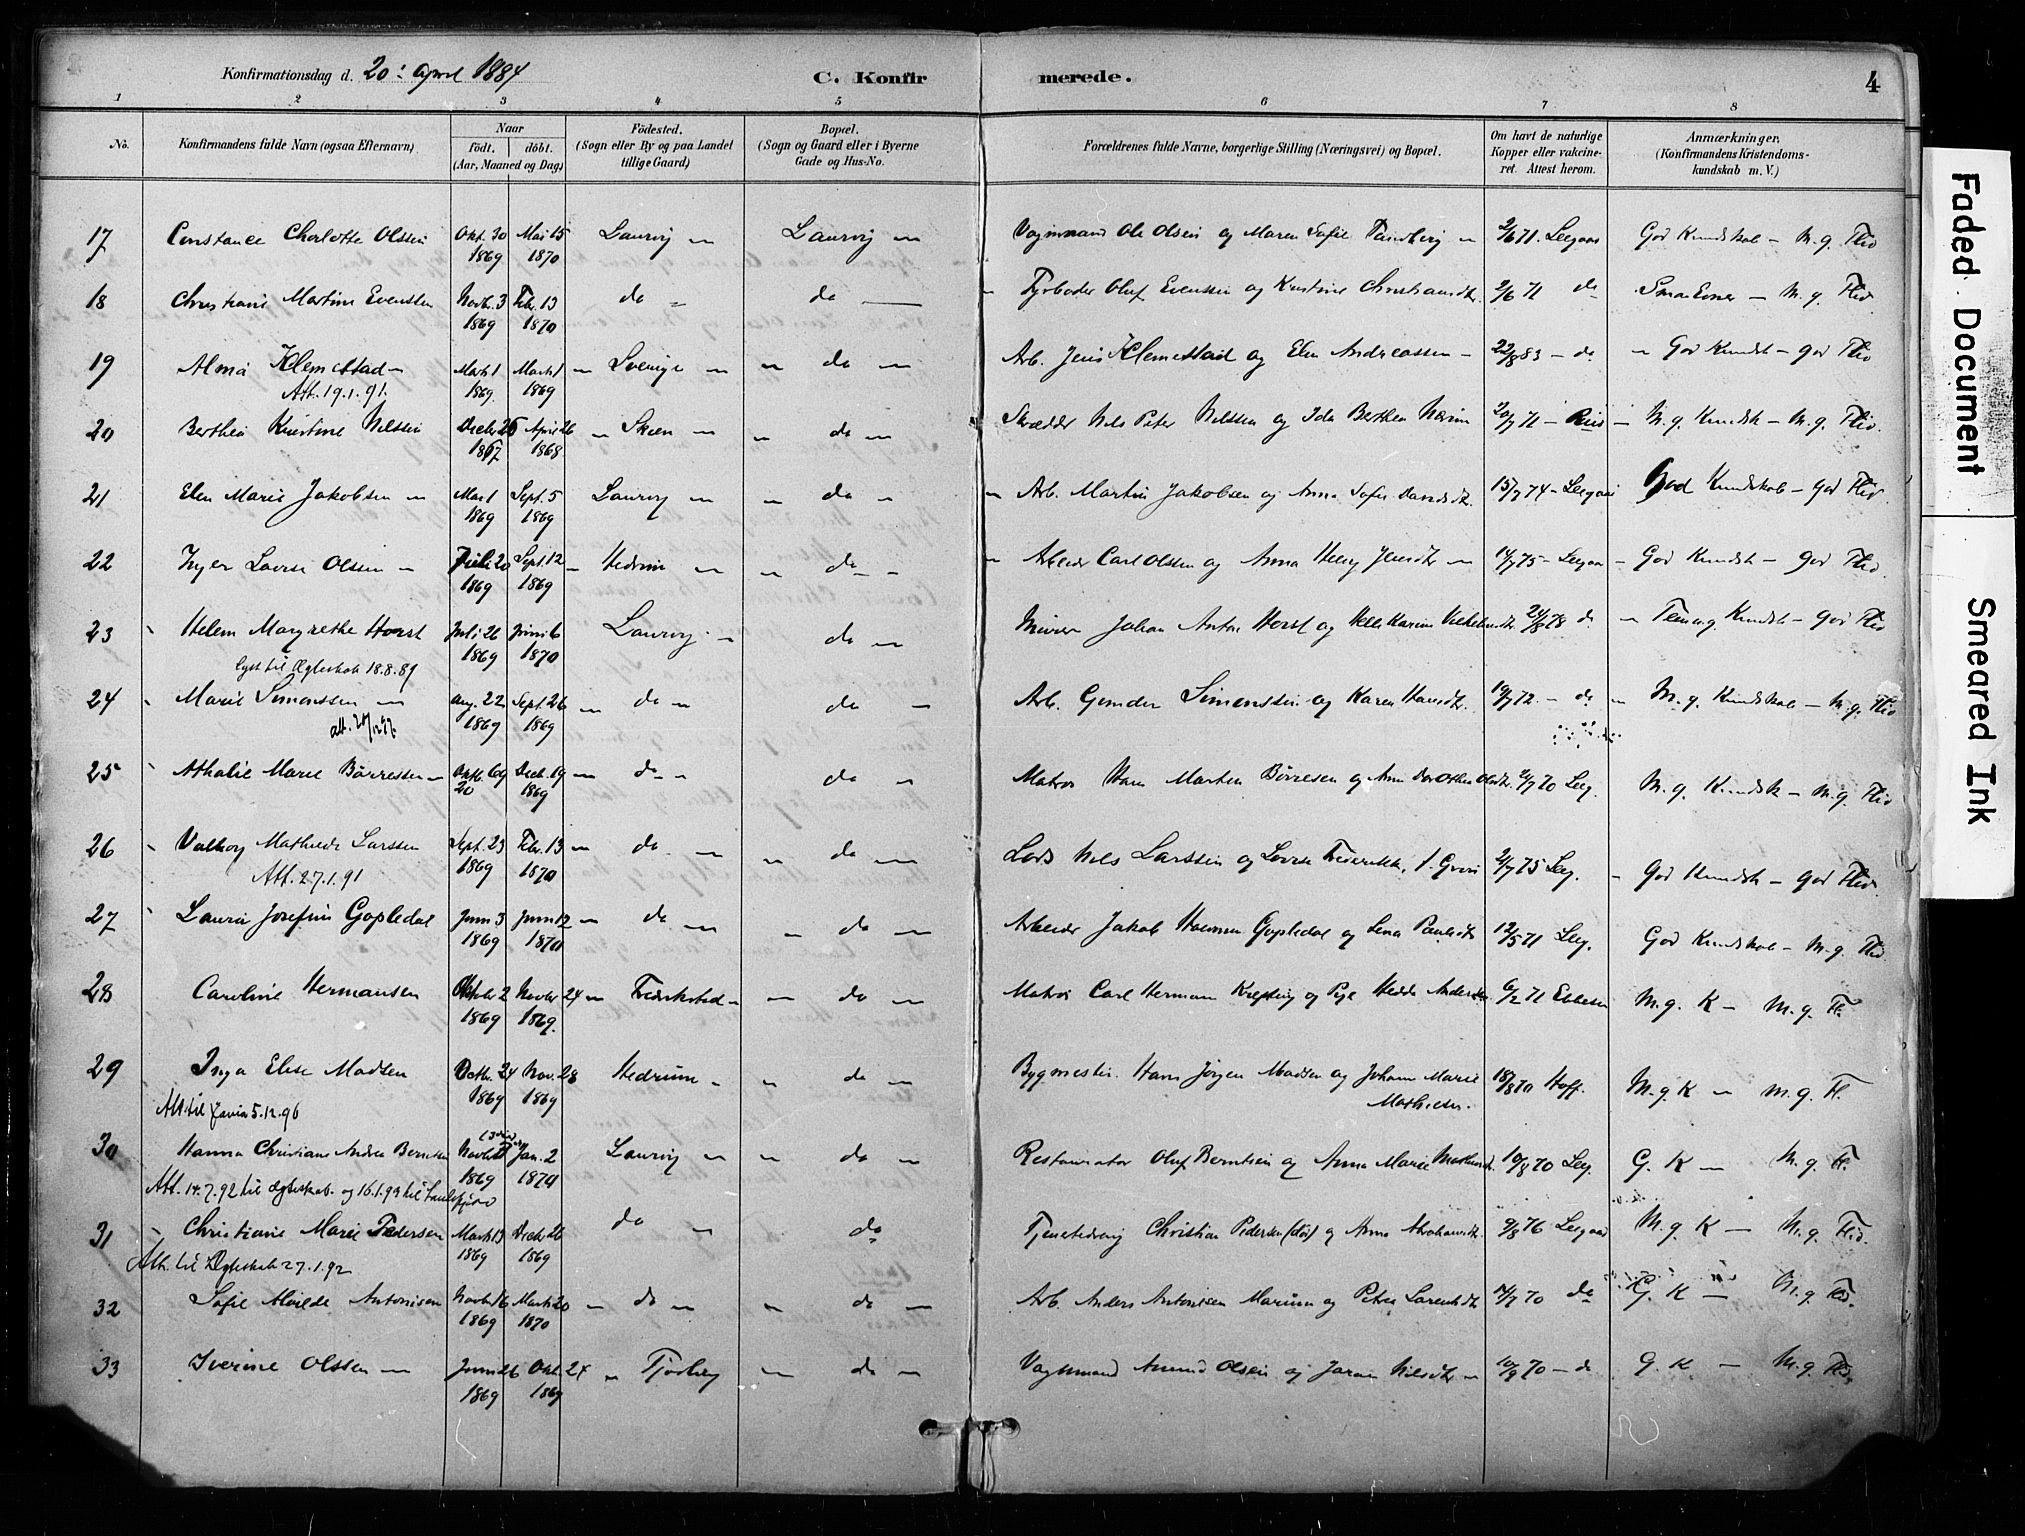 Konfirmationsdag d. 20. April 1884 C. Konfirmerede. 4
1 2 3 4 5 6 7 8
No. Konfirmandens fulde Navn (ogsaa Efternavn) Naar født. døbt. (Aar, Maaned og Dag) Fødested. (Sogn eller By og paa Landet tillige Gaard) Bopæl. (Sogn og Gaard eller i Byerne Gade og Hus-No. Forældrenes fulde Navne, borgerlige Stilling (Næringsvei) og Bopæl. Om havt de naturlige Kopper eller vakcineret. Attest herom. Anmærkninger. (Konfirmandens Kristendomskundskab m. V.)
17 Constance Charlotte Olssen Okt. 30 1869 Mai 15 1870 Laurvig Laurvig Vognmand Ole Olsen og Maren Sofie 2/6 71. God Kundskab – M. g. Flid
18 Christiane Martine Evensen Novb. 3 1869 Febr. 13 1870 do do Fyrbøder Oluf Evensen og Kristine Christiansdtr. 2/6 71 do Smaa Evner – M. g. Flid
19 Alma Klemetstad Marts 1 1869 Marts 1 1869 Sverige do Arb. Jens Klemetstad og Elen Andreassen 22/8 83 – do God Kundsk – god Flid
Att. 19.1.91.
20 Berthea Kristine Nilssen Decbr 25 1867 April 26 1868 Skien do Skrædder Nils Peter Nilssen og Ida Berthea 20/7 71 M. g. Kundsk – M. g. Flid.
21 Elen Marie Jakobsen Mai 1 1869 Sept. 5 1869 Laurvig do Arb. Martin Jakobsen og Anna Sofie Davidsdtr. 15/7 74 God Kundskab – god Flid.
22 Inger Lovise Olssen Juli 20 1869 Sept. 12 1869 Hedrum do Arbeider Carl Olsen og Anna Jensdtr 14/7 75 God Kundsk – god Flid.
23 Helene Margrethe Horst Juli 26 1869 Juni 6 1870 Laurvig do Murer Johan Anton Horst og Karine 24/8 78 do Temmg. Kundsk – god Flid
Lyst til Ægteskab 18.8.89
24 Marie Simonssen Aug. 22 1869 Sept. 26 1869 do do Arb. Gunder Simonsen og Karen Hansdtr. 19/7 72. – do M. g. Kundskab – M. g. Flid
25 Athalie Marie Børressen Oktb. 69 20 Decb. 19 1869 do do Matros Hans Martin Børresen og Ann Dorothea Olsdtr. 2/7 70 M. g. Kundsk – M. g. Flid
26 Valborg Mathilde Larssen Sept. 23 1869 Febr. 13 1870 do do Lods Nils Larssen og Lovise Fredrikke, 21/7 75 God Kundsk – god Flid.
Att. 27.1.91
27 Laura Josefine Gopledal Juni 3 1869 Juni 12 1870 do do Arbeider Jakob Gopledal og Lena Paulsdtr 12/5 71 God Kundskab – M. g. Flid.
28 Caroline Hermansen Oktober 2 1869 Novbr 24 1869. Fredrikstad do Matros Carl Herman og Pige Hedda Andersen 6/2 71 Ebbesen M. g. K – M. g. Fl.
29 Inga Elise Madsen Octb. 24 1869 Nov. 28 1869 Hedrum do Bygmester Hans Jørgen Madsen og Johanne Marie Mathisen. 18/8 70 Hoff. M. g. K – m. g. Fl.
Att til 5.12.96
30 Hanna Christiane Andrea Berntsen Novbr 1869 Jan. 2 1870 Laurvig do Restauratør Oluf Berntsen og Anna Marie 10/8 70 G. K – M. g. Fl.
Att. 14.7.92 til Ægteskab og 16.1.93 til
31 Christiane Marie Pedersen Marts 13 1869 Decbr 26 1869 do do Christian Pedersen (død) og Anna Abrahamsdtr. 9/8 76 M. g. K – M. g. Flid.
Att. til Ægteskab 27.1.92
32 Sofie Alvilde Antonisen Novbr 16 1869 Marts 20 1870 do do Arb. Anders Antonisen og Petra Larensdtr 14/7 70 do G. K – M. g. Flid.
33 Iverine Olssen Juni 26 1869 Okt. 24 1869 Tjødling do Vognmand Amund Olsen og Nilsdtr 10/9 70 – do G. K – M. g. Flid.
Faded Document
Smeared Ink